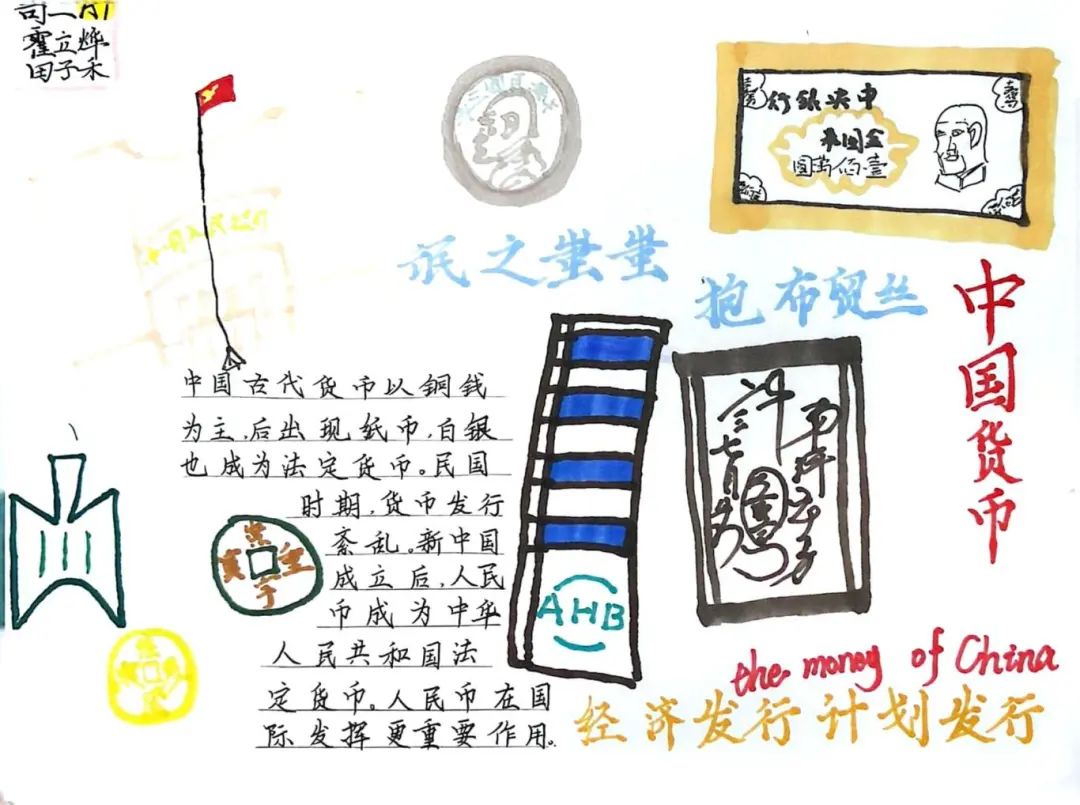 霍立烨
田子禾
中央银行
壹佰萬圓
氓之蚩蚩
抱布贸丝
中国货币
中国古代货币以铜钱
为主，后出现纸币，白银
也成为法定货币。民国
时期，货币发行
紊乱。新中国
成立后，人民
币成为中华
人民共和国法
定货币。人民币在国
际发挥更重要作用。
AHB
the money of China
经济发行计划发行